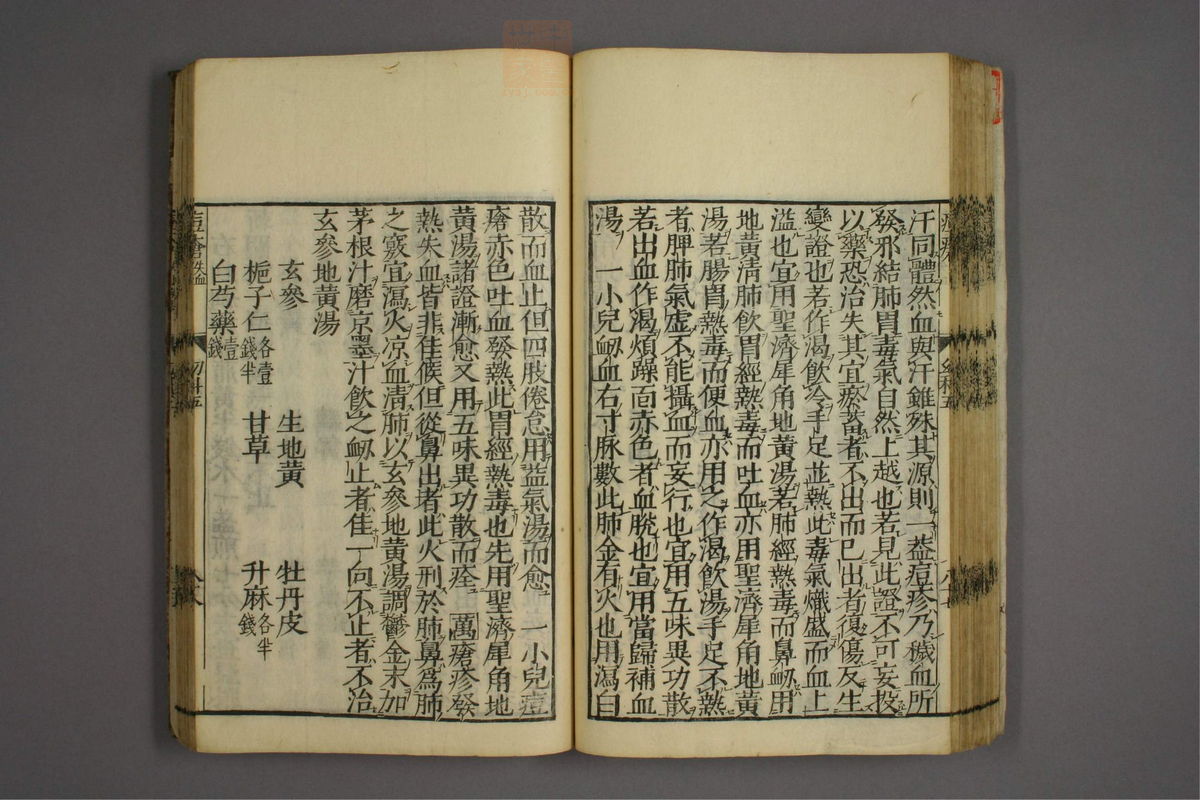 汗同體然血與汗雖殊其源則一葢痘疹乃穢血所
發邪結肺胃毒氣自然上越也若見此證不可妄投
以藥恐治失其宜瘀蓄者不出而已出者復傷反生
變證也若作渴飲冷手足並熱此毒氣熾盛而血上
溢也宜用聖濟犀角地黃湯若肺經熱毒而鼻衂用
地黃清肺飲胃經熱毒而吐血亦用聖濟犀角地黃
湯若腸胃熱毒而便血亦用之作渴飲湯手足不熱
者脾肺氣虛不能攝血而妄行也宜用五味異功散
若出血作渴煩躁面赤色者血脫也宜用當歸補血
湯 一小兒衂血右寸脉數此肺金有火也用瀉白
散而血止但四肢倦怠用益氣湯而愈 一小兒痘
瘡赤色吐血發熱此胃經熱毒也先用聖濟犀角地
黃湯諸證漸愈又用五味異功散而痊 萬瘡疹發
熱失血皆非佳候但從鼻出者此火刑於肺鼻爲肺
之竅宜瀉火凉血清肺以玄參地黃湯調鬱金末加
茅根汁磨京墨汁飲之衂止者佳一向不止者不治
玄參地黃湯
玄參 生地黃 牡丹皮
梔子仁各壹錢半 甘草 升麻各半錢
白芍藥壹錢